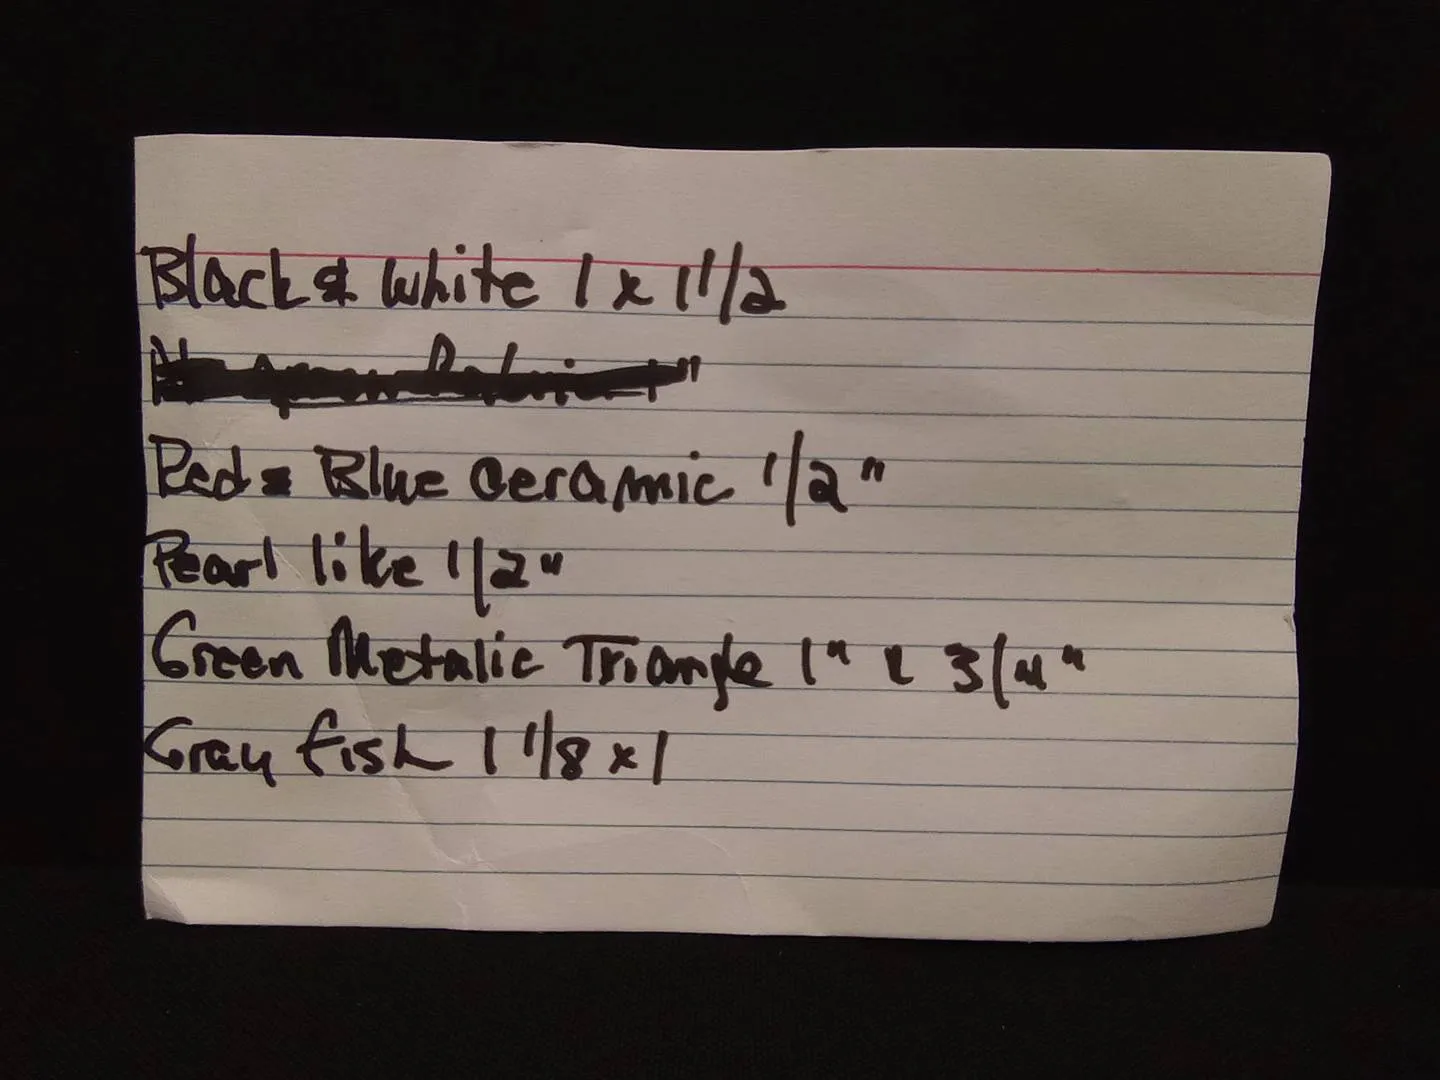 Black & White 1 x 1 1/2
Red & Blue Ceramic 1/2"
Pearl like 1/2"
Green Metalic Triangle 1" x 3/4"
Gray fish 1 1/8 x 1